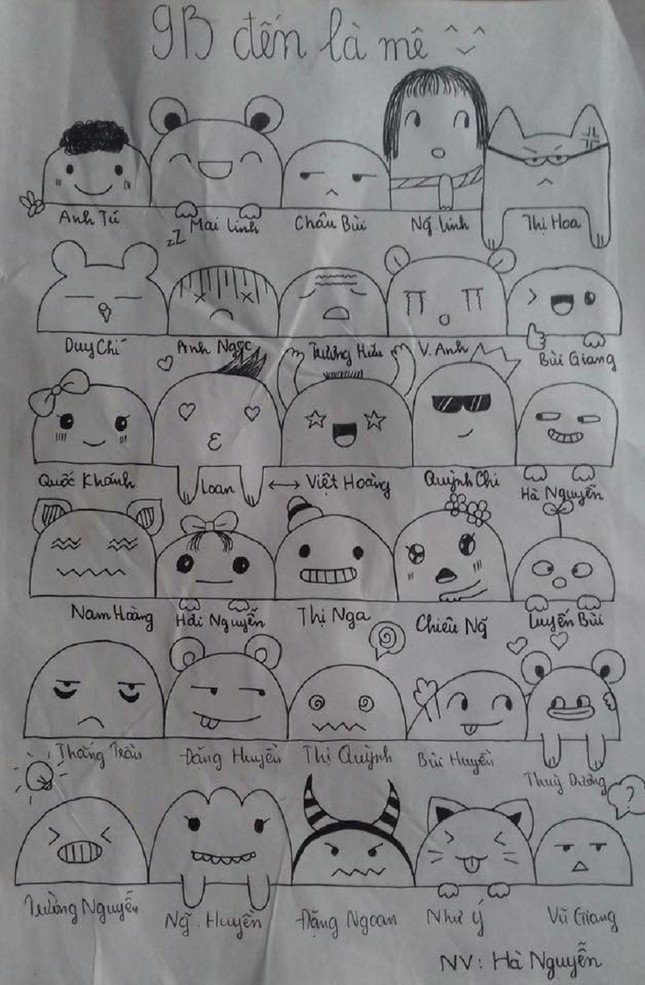 9B đến là mê
Anh Tú Mai Linh Châu Bùi Ng̃ Linh Thị Hoa
zZ
Duy Chí Anh Ngọc Trương Hiếu V. Anh Bùi Giang
Quốc Khánh Loan ↔ Việt Hoàng Quỳnh Chi Hà Nguyễn
Nam Hoàng Hải Nguyễn Thị Nga Chiêu Ng̃ Luyến Bùi
Thắng Trần Đăng Huyền Thị Quỳnh Bùi Huyền Thuỳ Dương
?
Trường Nguyễn Ng̃. Huyền Đặng Ngoan Như Ý Vũ Giang
NV: Hà Nguyễn